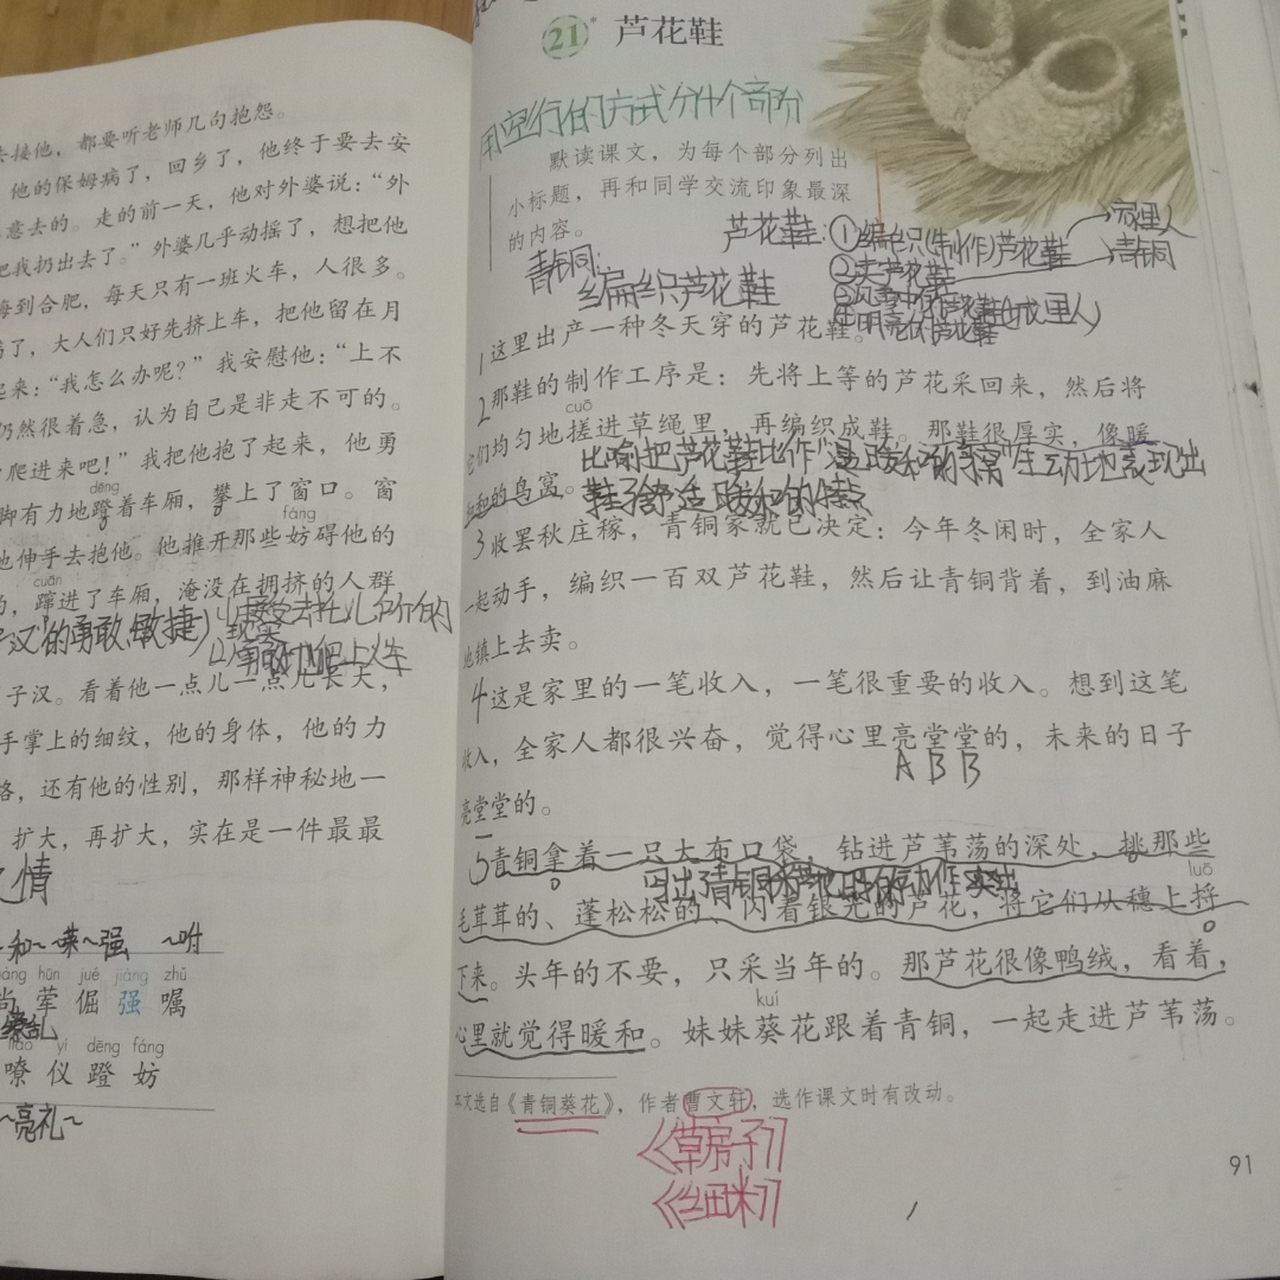 去接他，都要听老师几句抱怨。
他的保姆病了，回乡了，他终于要去安
意去的。走的前一天，他对外婆说：“外
把我扔出去了。”外婆几乎动摇了，想把他
海到合肥，每天只有一班火车，人很多。
了，大人们只好先挤上车，把他留在月
起来：“我怎么办呢？”我安慰他：“上不
仍然很着急，认为自己是非走不可的。
爬进来吧！”我把他抱了起来，他勇
dēng
脚有力地蹬着车厢，攀上了窗口。窗
fáng
他伸手去抱他。他推开那些妨碍他的
cuān
，蹿进了车厢，淹没在拥挤的人群
汉”的勇敢、敏捷）(1)接受去托儿所的
现实
(2)勇敢地爬上火车
子汉。看着他一点儿一点儿长大，
手掌上的细纹，他的身体，他的力
格，还有他的性别，那样神秘地一
扩大，再扩大，实在是一件最最
之情
～和～ 味～强 ～咐
hūn jué jiàng zhǔ
尚 荤 倔 强 嘱
缭乱
liáo yí dēng fáng
嘹 仪 蹬 妨
～亮礼～
21* 芦花鞋
用空行的方式分4个部分
默读课文，为每个部分列出
小标题，再和同学交流印象最深
的内容。
芦花鞋：①编织(制作)芦花鞋
家里人
青铜
②卖芦花鞋
③风雪中
④明亮的芦花鞋
青铜：
编织芦花鞋
1这里出产一种冬天穿的芦花鞋。
2那鞋的制作工序是：先将上等的芦花采回来，然后将
cuō
它们均匀地搓进草绳里，再编织成鞋。那鞋很厚实，像暖
比喻把芦花鞋比作“温暖和的鸟窝”生动地表现出
和和的鸟窝。
鞋子舒适暖和的特点
3收罢秋庄稼，青铜家就已决定：今年冬闲时，全家人
一起动手，编织一百双芦花鞋，然后让青铜背着，到油麻
地镇上去卖。
4这是家里的一笔收入，一笔很重要的收入。想到这笔
收入，全家人都很兴奋，觉得心里亮堂堂的，未来的日子
A B B
亮堂堂的。
5青铜拿着一只大布口袋，钻进芦苇荡的深处，挑那些
写出了青铜的动作
luō
毛茸茸的、蓬松松的、闪着银光的芦花，将它们从穗上捋
下来。头年的不要，只采当年的。那芦花很像鸭绒，看着，
kuí
心里就觉得暖和。妹妹葵花跟着青铜，一起走进芦苇荡。
本文选自《青铜葵花》，作者曹文轩，选作课文时有改动。
《草房子》
《细米》
91